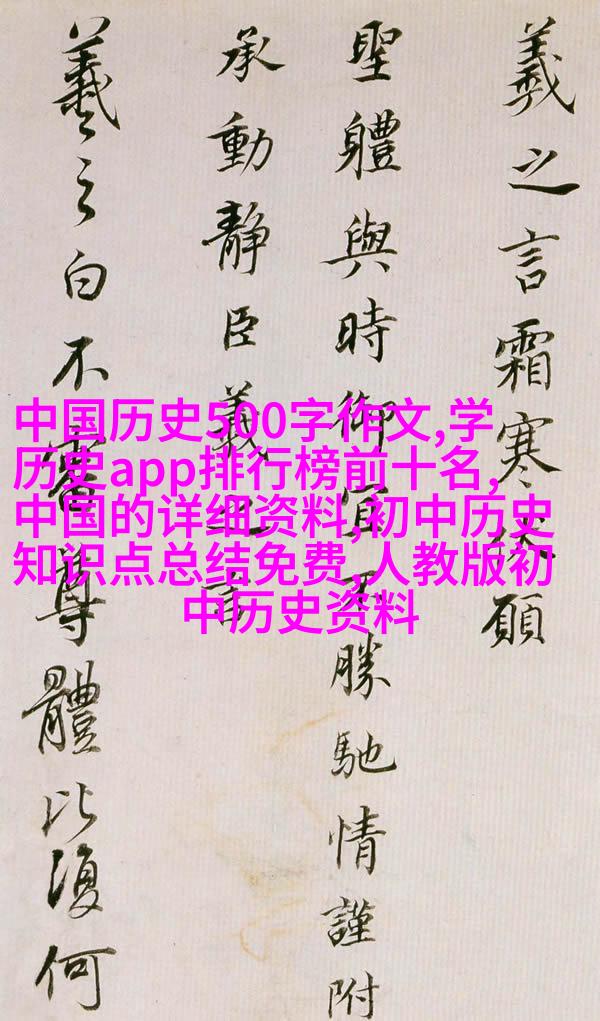 羲之言霜寒伏願
聖體與時御宜不勝馳情謹附
承動靜臣羲之言
羲之白不審尊體比復何
中国历史500字作文,学
历史app排行榜前十名,
中国的详细资料,初中历史
知识点总结免费,人教版初
中历史资料